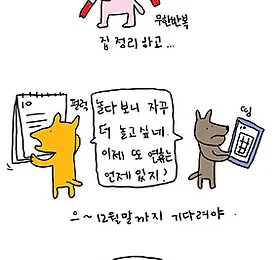 무한반복
짐 정리하고...
10
펄럭
놀다 보니 자꾸
더 놀고싶네.
이제 또 연휴는
언제 있지?
띵
10
으~ 12월말까지 기다려야.